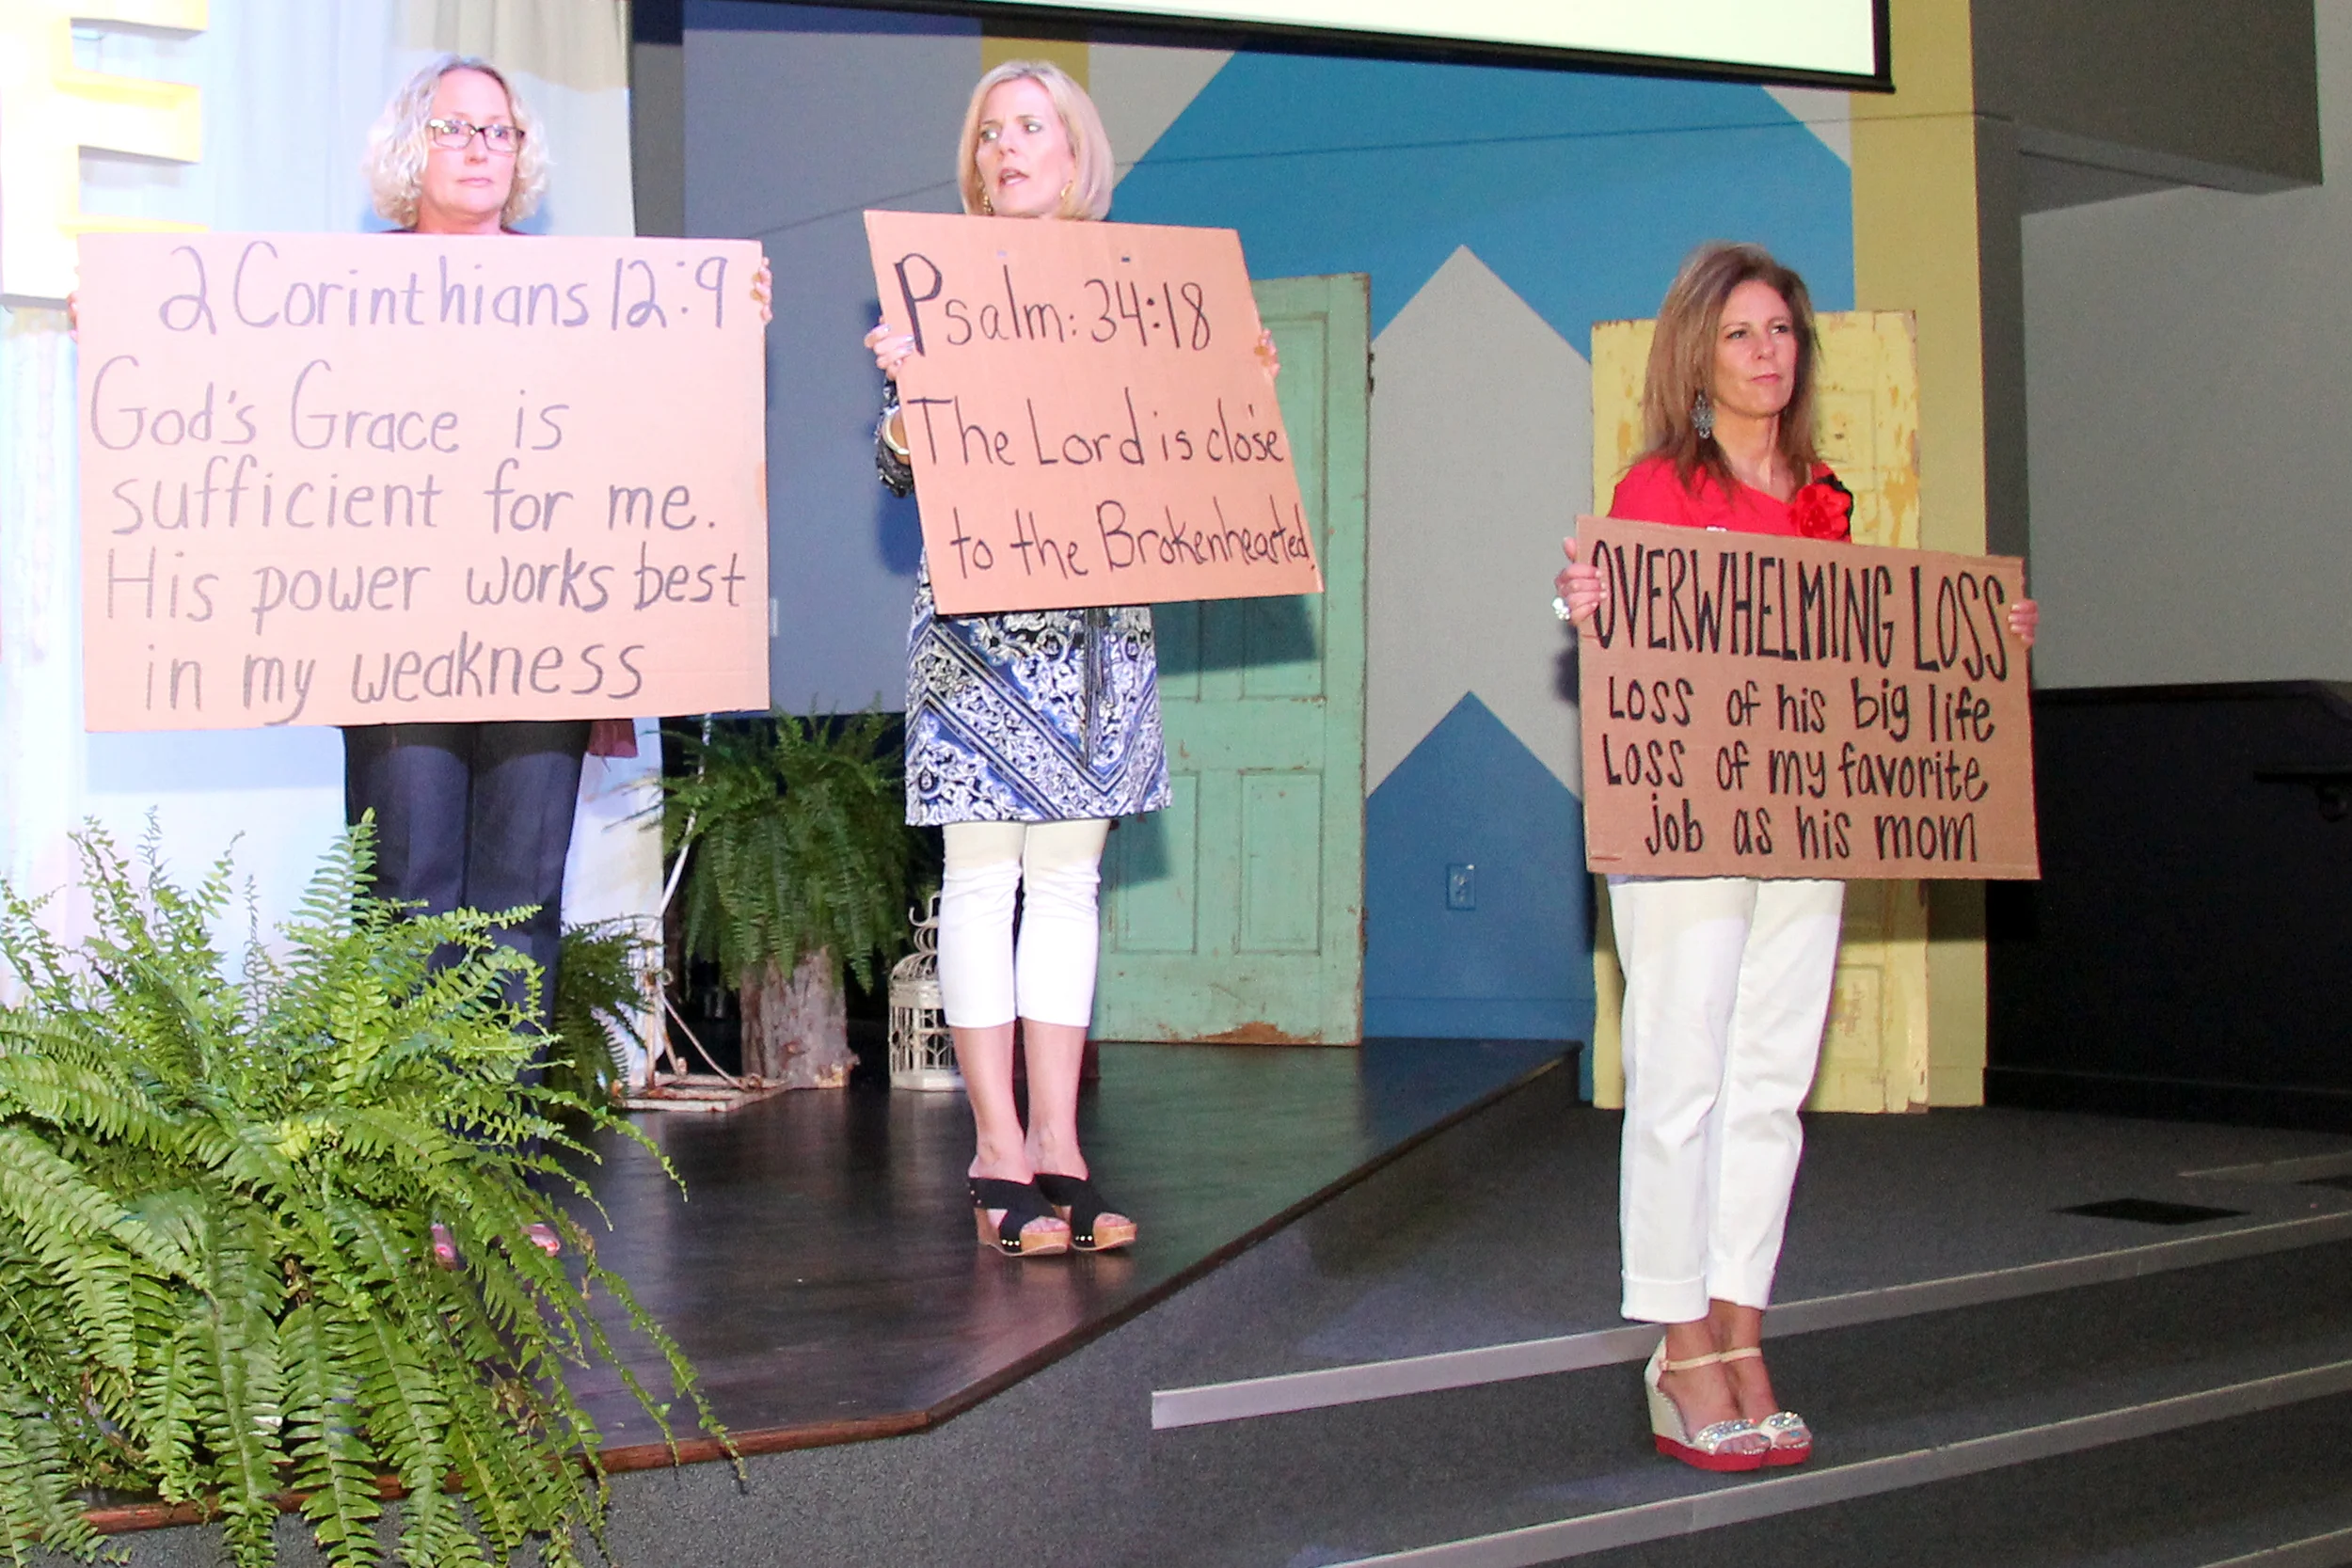 E
2 Corinthians 12:9
God's Grace is
sufficient for me.
His power works best
in my weakness
Psalm: 34:18
The Lord is close
to the Brokenhearted.
OVERWHELMING LOSS
LOSS of his big life
LOSS of my favorite
job as his mom